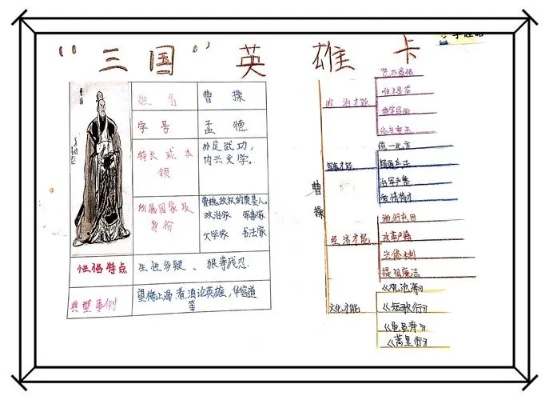 "三国"英雄卡
姓名 曹操
字号 孟德
特长或本领 外定武功，
内兴文学。
所属国家及身份 曹魏政权的奠基人、
政治家 军事家
文学家 书法家
性格特点 生性多疑、狠毒残忍.
典型事例 望梅止渴 煮酒论英雄，华容道
等
曹操
政治才能
唯才是举
统一北方
军事才能
精通兵法
治军严整
经济才能
兴修水利
文化才能
《观沧海》
《短歌行》
《龟虽寿》
《蒿里行》